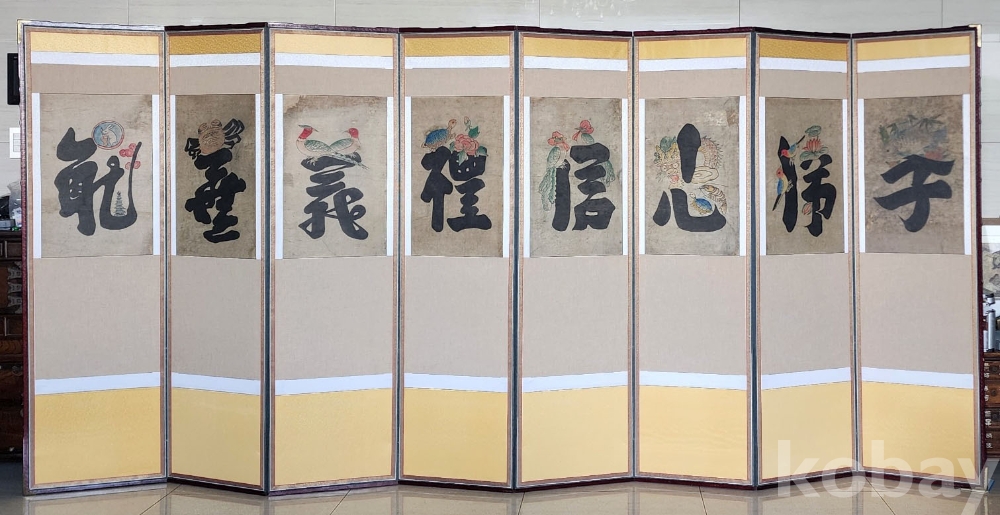 孝悌忠信禮義廉恥
kobay